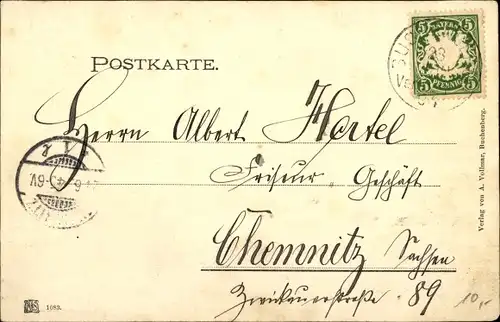 BAYERN
5 5
5 PFENNIG 5
POSTKARTE.
Herrn Albert Hertel
Friseur-Geschäft
Chemnitz Sachsen
Zwickauerstraße 89
Verlag von A. Vollmar, Buchenberg.
1083.
10,-